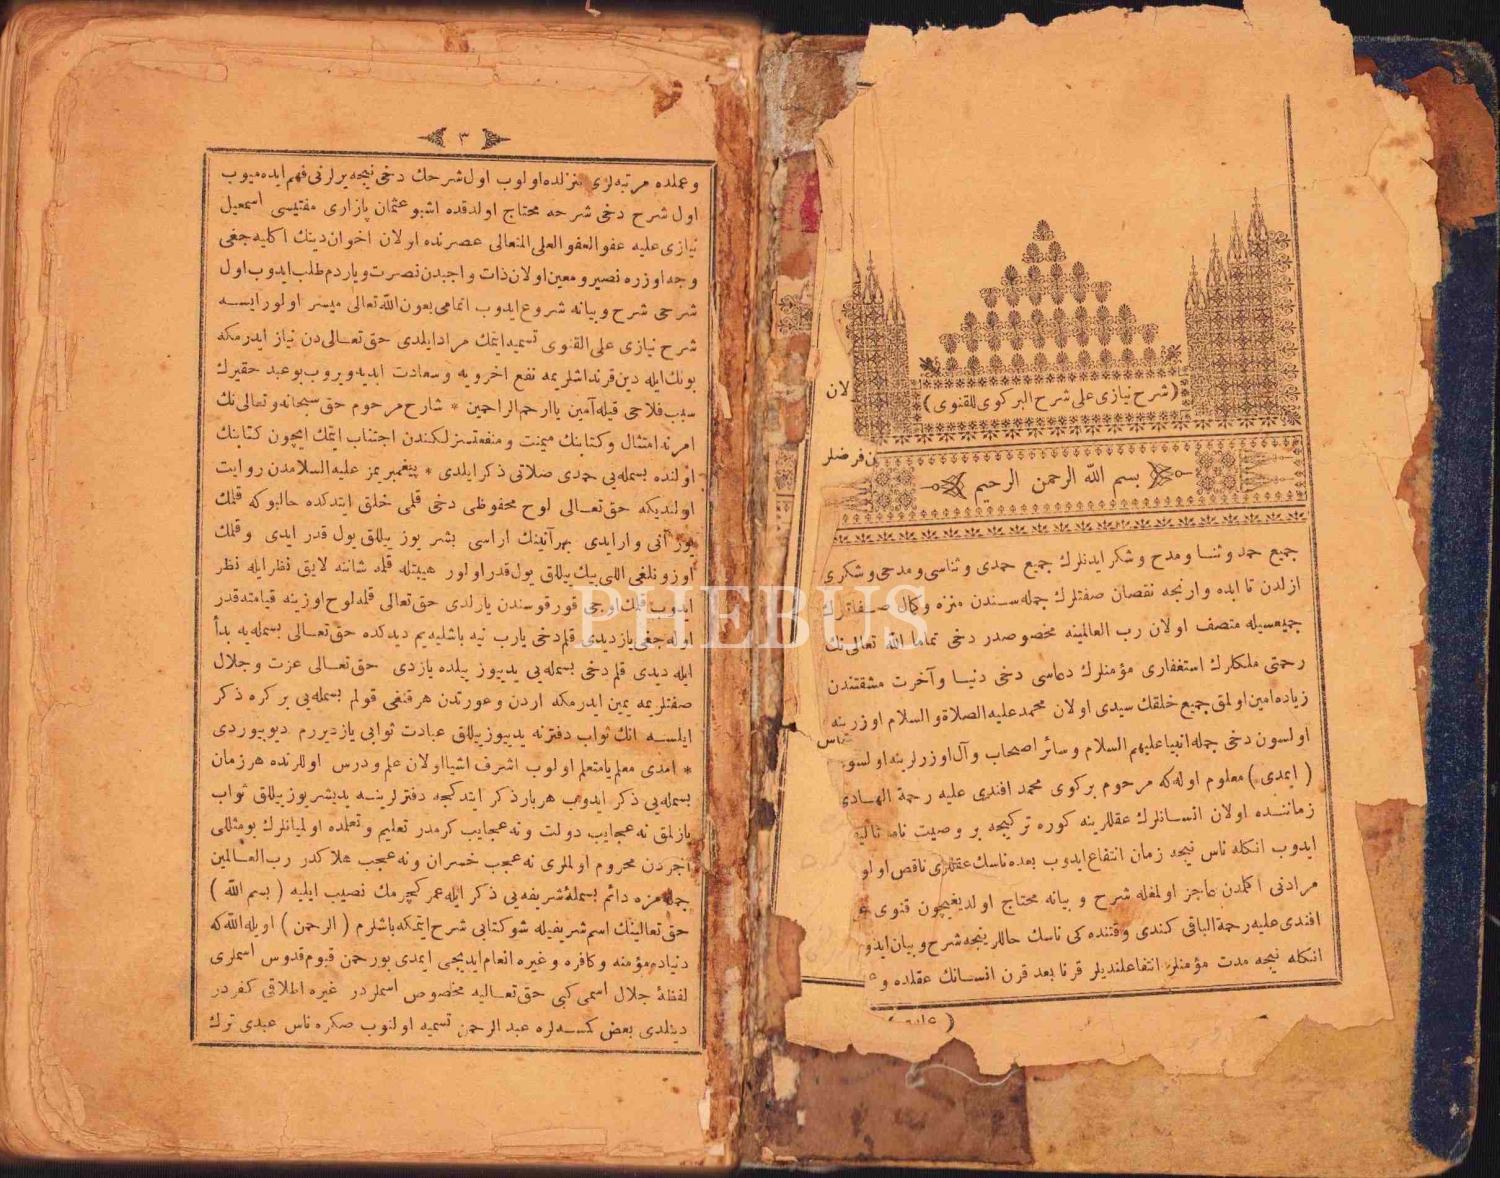 ( شرح نیازی علی شرح البرکوی للقنوی )
بسم الله الرحمن الرحیم
جمیع حمد و ثنا و مدح و شکر ایدنلرك جمیع حمدی و ثناسی و مدحی و شکری
ازلدن تا ابده وارنجه نقصان صفتلرك جمله‌سندن منزه و کمال صفاتلرك
جمیعسیله متصف اولان رب العالمینه مخصوصدر دخی تماما الله تعالی‌نك
رحمتی ملکلرك استغفاری مؤمنلرك دعاسی دخی دنیا و آخرت مشقتندن
زیاده امین اولمق جمیع خلقك سیدی اولان محمد علیه الصلاة والسلام اوزرینه
اولسون دخی جمله انبیا علیهم السلام و سائر اصحاب و آل اوزرلرینه اولسون
( ایمدی ) معلوم اوله که مرحوم برکوی محمد افندی علیه رحمة الهادی
زماننده اولان انسانلرك عقللرینه کوره ترکیجه بر وصیت نامه
ایدوب انکله ناس نیجه زمان انتفاع ایدوب بعده ناسك عقللری ناقص اولو
مرادنی اکلمدن عاجز اولمغله شرح و بیانه محتاج اولدیغیچون قنوی
افندی علیه رحمة الباقی کندی وقتنده کی ناسك حاللرینجه شرح و بیان ایدو
انکله نیجه مدت مؤمنلر انتفاعلندیلر قرنا بعد قرن انسانك عقلده و
لان
ن فرضلر
ناس
٣
و عملده مرتبه‌لری منزلده اولوب اول شرحك دخی نیجه یرلرنی فهم ایده‌میوب
اول شرح دخی شرحه محتاج اولدقده اشبو عثمان پازاری مفتیسی اسمعیل
نیازی علیه عفو العفو العلی المتعالی عصرنده اولان اخوان دینك اکلیه‌جغی
وجه اوزره نصیر و معین اولان ذات واجبدن نصرت و یاردم طلب ایدوب اول
شرحی شرح و بیانه شروع ایدوب اتمامی بعون الله تعالی میسر اولور ایسه
شرح نیازی علی القنوی تسمیه ایتمك مراد ایلدی حق تعالی‌دن نیاز ایدرمکه
بونك ایله دین قرنداشلریمه نفع اخرویه و سعادت ابدیه ویروب بو عبد حقیرك
سبب فلاحی قیله آمین یا ارحم الراحمین * شارح مرحوم حق سبحانه و تعالی‌نك
امرنه امتثال و کتابنك میمنت و منفعتسزلکندن اجتناب ایتمك ایچون کتابنك
اولنده بسمله‌یی حمدی صلاتی ذکر ایلدی * پیغمبریمز علیه السلامدن روایت
اولندیکه حق تعالی لوح محفوظی دخی قلمی خلق ایتدکده حالبوکه قلمك
یوز آتی وار ایدی بهر آتینك اراسی بشر یوز ییللق یول قدر ایدی و قلمك
اوزونلغی اللی بیك ییللق یول قدر اولور هیبتله قلمه شاننه لایق نظر ایله نظر
ایدوب قلمك اوجی قورقوسندن یارلدی حق تعالی قلمه لوح اوزینه قیامته‌قدر
اوله‌جغی یاز دیدی قلم دخی یارب نیه باشلیه‌یم دیدکده حق تعالی بسمله‌یه بدأ
ایله دیدی قلم دخی بسمله‌یی یدییوز ییلده یازدی حق تعالی عزت و جلال
صفتلریمه یمین ایدرمکه اردن و عورتدن هرقنغی قولم بسمله‌یی بر کره ذکر
ایلسه انك ثواب دفترنه یدییوز ییللق عبادت ثوابی یازدیررم دیو بیوردی
* امدی معلم یا متعلم اولوب اشرف اشیا اولان علم و درس اوللرنده هر زمان
بسمله‌یی ذکر ایدوب هر بار ذکر ایتدکجه دفترلرینه یدیشر یوز ییللق ثواب
یازلمق نه عجایب دولت و نه عجایب کرمدر تعلیم و تعلمده اولمیانلرك بو مثللی
اجردن محروم اولملری نه عجب خسران و نه عجب هلاکدر رب العالمین
جمله‌مزه دائم بسملهٔ شریفه‌یی ذکر ایله عمر کچرمك نصیب ایلیه ( بسم الله )
حق تعالینك اسم شریفیله شو کتابی شرح ایتمکه باشلرم ( الرحمن ) اویله الله که
دنیاده مؤمنه و کافره و غیره انعام ایدیجی ایمدی بو رحمن قیوم قدوس اسملری
لفظهٔ جلال اسمی کبی حق تعالیه مخصوص اسملردر غیره اطلاقی کفردر
دینلدی بعض کمسه‌لره عبد الرحمن تسمیه اولنوب صکره ناس عبدی ترك
PHEBUS